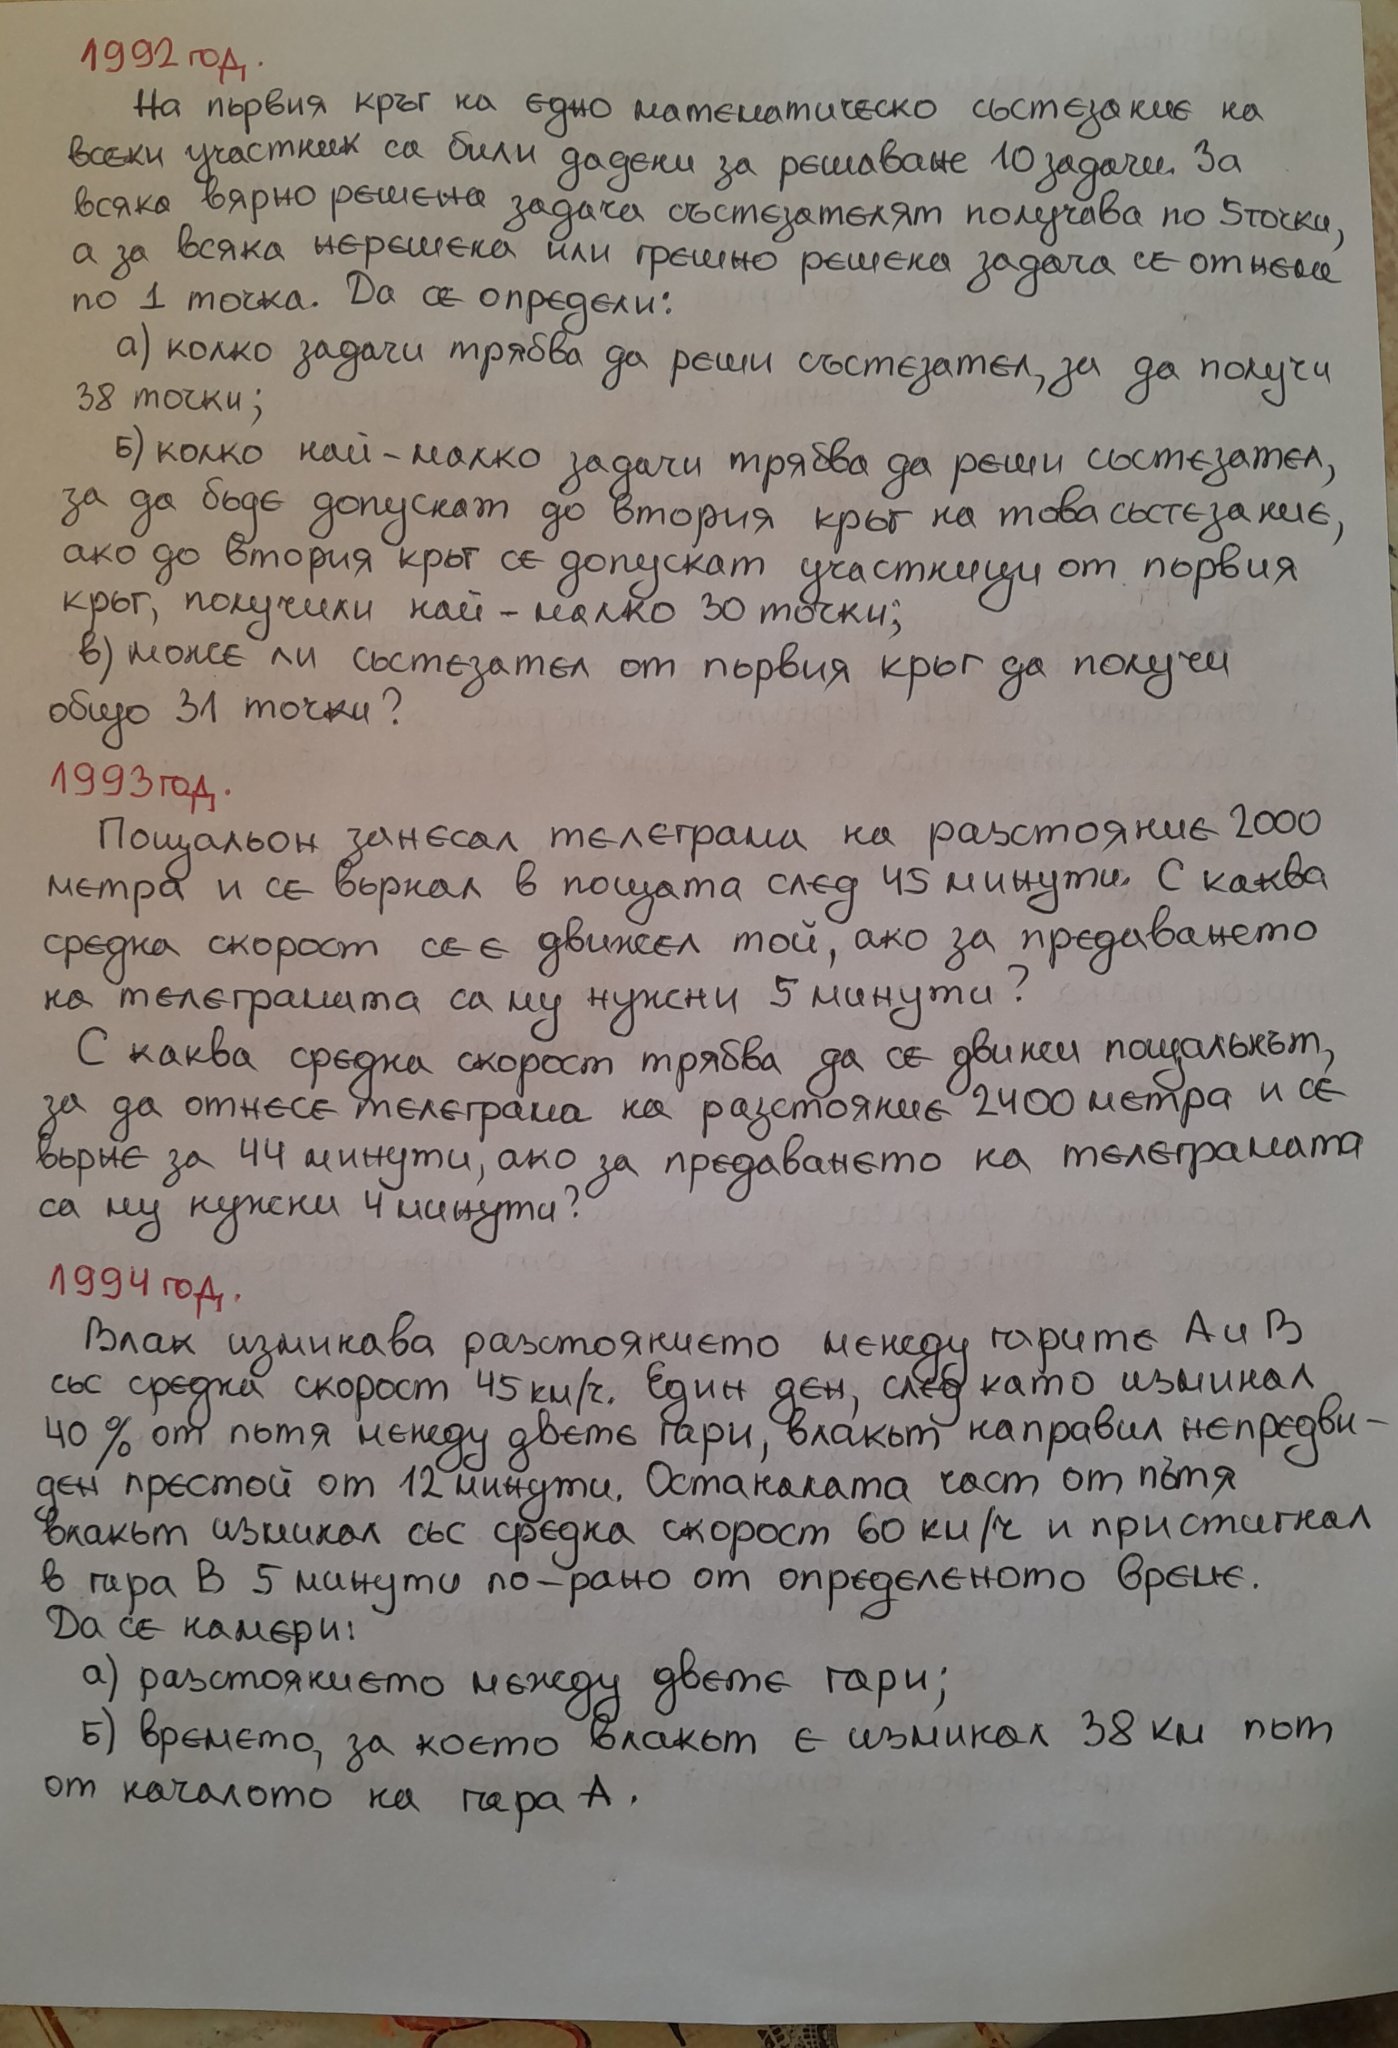 1992 год.
На първия кръг на едно математическо състезание на
всеки участник са били дадени за решаване 10 задачи. За
всяка вярно решена задача състезателят получава по 5 точки,
а за всяка нерешена или грешно решена задача се отнема
по 1 точка. Да се определи:
а) колко задачи трябва да реши състезател, за да получи
38 точки;
б) колко най-малко задачи трябва да реши състезател,
за да бъде допускат до втория кръг на това състезание,
ако до втория кръг се допускат участници от първия
кръг, получили най-малко 30 точки;
в) може ли състезател от първия кръг да получи
общо 31 точки?
1993 год.
Пощальон занесал телеграма на разстояние 2000
метра и се върнал в пощата след 45 минути. С каква
средна скорост се е движел той, ако за предаването
на телеграмата са му нужни 5 минути?
С каква средна скорост трябва да се движи пощальнът,
за да отнесе телеграма на разстояние 2400 метра и се
върне за 44 минути, ако за предаването на телеграмата
са му нужни 4 минути?
1994 год.
Влак изминава разстоянието между гарите А и В
със средна скорост 45 км/ч. Един ден, след като изминал
40 % от пътя между двете гари, влакът направил непредви-
ден престой от 12 минути. Останалата част от пътя
влакът изминал със средна скорост 60 км/ч и пристигнал
в гара В 5 минути по-рано от определеното време.
Да се намери:
а) разстоянието между двете гари;
б) времето, за което влакът е изминал 38 км път
от началото на гара А.